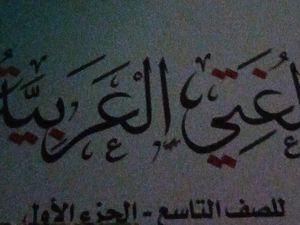 لغتي الْعَرَبِيَّة
للصف التاسع - الجزء الأول